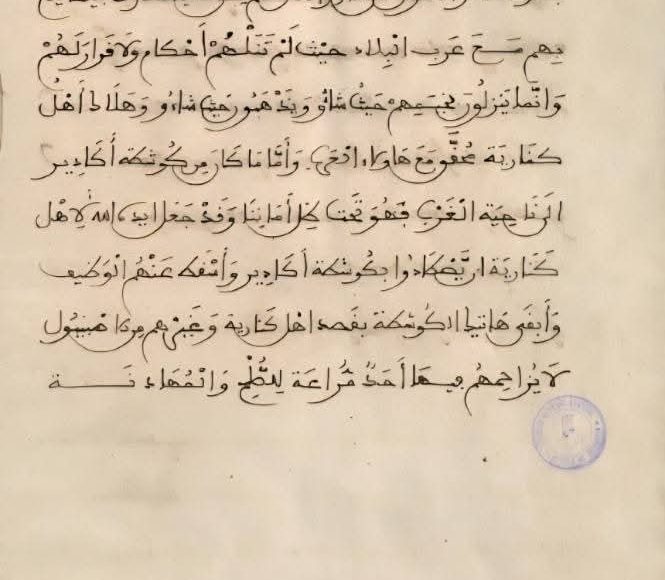 بهم مع عرب البلاد حيث لم تنلهم أحكام ولا قرار لهم
وانما ينزلون بخيمهم حيث شاؤو ويذهبون حيث شاءو وهلاك أهل
كنارية محقق مع هاولاء العرب وأما ما كان من كوشطة أكادير
الى ناحية الغرب فهو تحت أماننا وقد جعل ايده الله لاهل
كنارية ان يصطادوا بكوشطة أكادير وأسقط عنهم الوظيف
وأبقى هاتيك الكوشطة بقصد اهل كنارية وغيرهم من
لا يزاحمهم فيها أحد مراعة للصلح والمهادنة